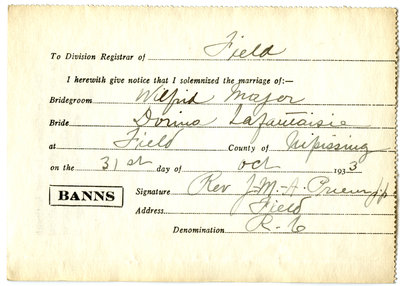 To Division Registrar of Field
I herewith give notice that I solemnized the marriage of:—
Bridegroom Wilfrid Major
Bride Donna Lafantaisie
at Field County of Nipissing
on the 31st day of Oct 1933
BANNS
Signature Rev J.M.-A.
Address Field
Denomination R-C